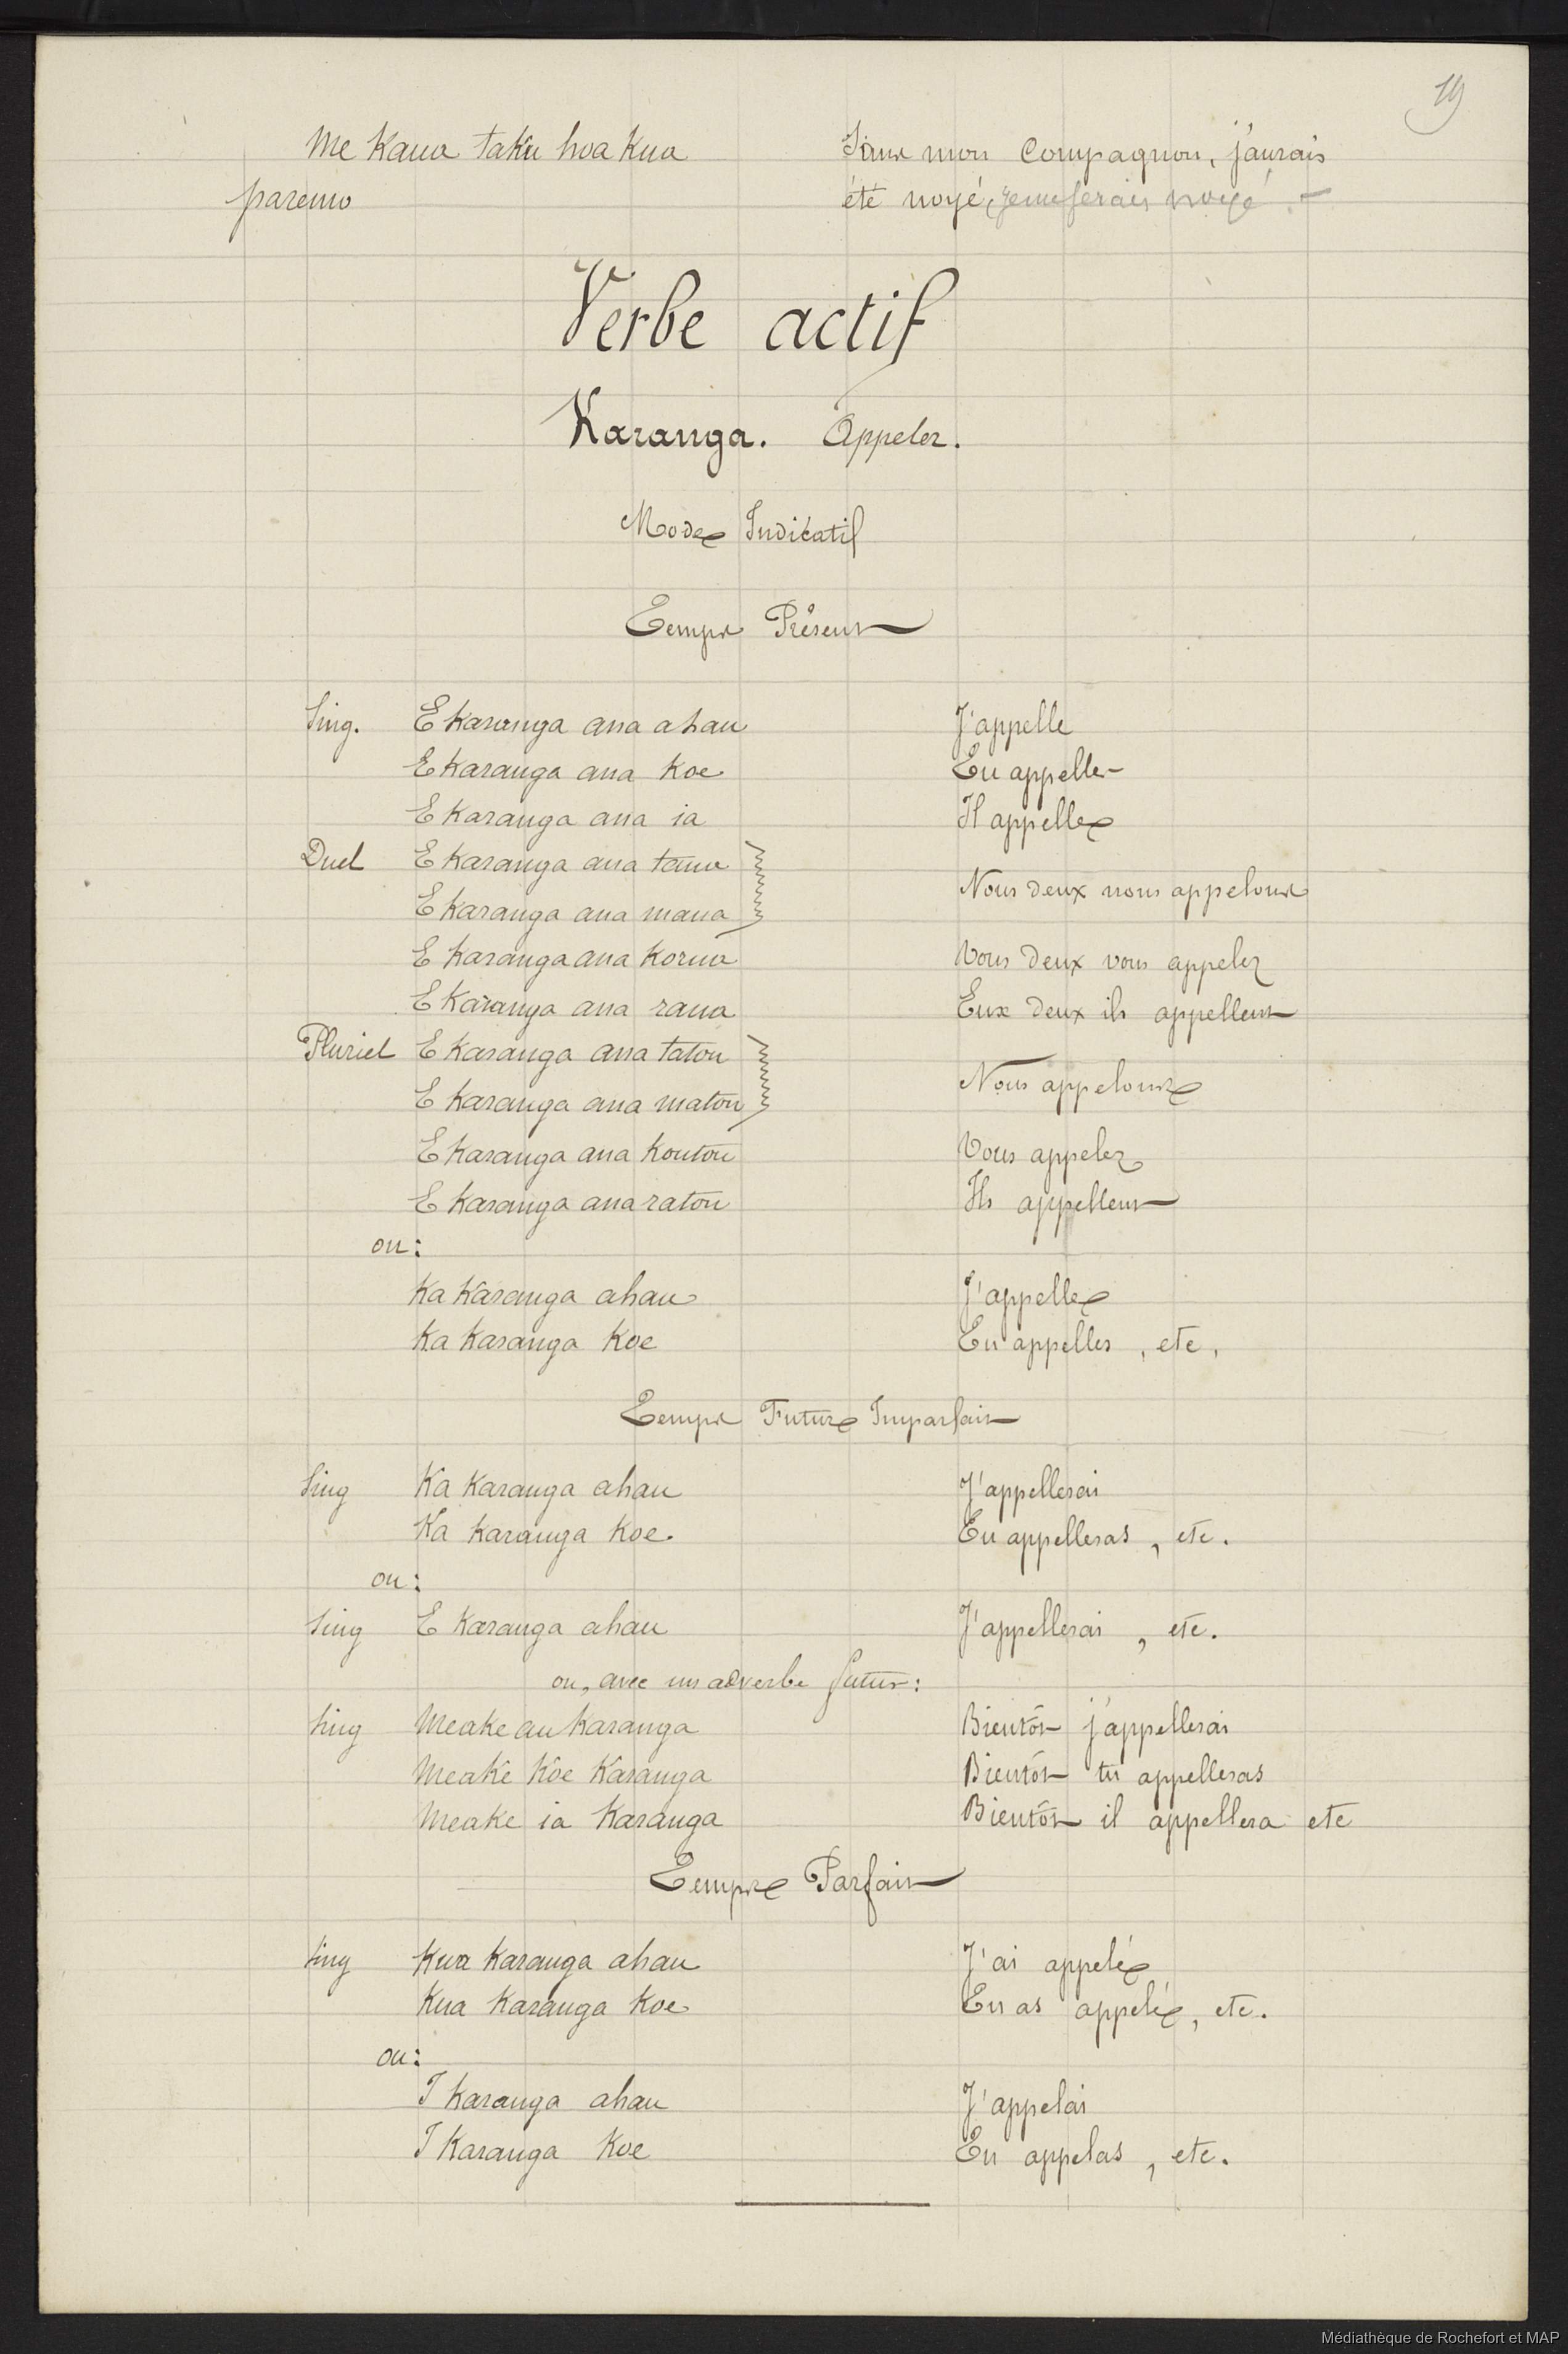 19
Me Kaua taku hoa kua Sans mon Compagnon, j'aurais
paremo été noyé, je me serais noyé. -
Verbe actif
Karanga. Appeler.
Mode Indicatif
Temps Présent
Sing. E karanga ana ahau J'appelle
E karanga ana koe Tu appelles
E karanga ana ia Il appelle
Duel E karanga ana taua
Nous deux nous appelons
E karanga ana maua
E karanga ana korua Vous deux vous appelez
E karanga ana raua Eux deux ils appellent
Pluriel E karanga ana tatou
Nous appelons
E karanga ana matou
E karanga ana koutou Vous appelez
E karanga ana ratou Ils appellent
ou:
Ka karanga ahau J'appelle
Ka karanga koe Tu appelles, etc,
Temps Futur Imparfait
Sing Ka karanga ahau J'appellerai
Ka karanga koe. Tu appelleras, etc.
ou:
Sing E karanga ahau J'appellerai, etc.
ou, avec un adverbe futur:
Sing Meake au karanga Bientôt j'appellerai
Meake koe karanga Bientôt tu appelleras
Meake ia karanga Bientôt il appellera etc
Temps Parfait
Sing Kua karanga ahau J'ai appelé
Kua karanga koe Tu as appelé, etc.
ou:
I karanga ahau J'appelai
I karanga koe Tu appelas, etc.
Médiathèque de Rochefort et MAP